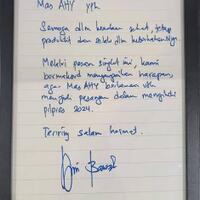 Mas AHY yth
Semoga dlm keadaan sehat, tetap
produktif dan selalu dlm keberkahanNya
Melalui pesan singkat ini, kami
bermaksud menyampaikan harapan,
agar Mas AHY berkenan utk
menjadi pasangan dalam mengikuti
pilpres 2024.
Teriring salam hormat.